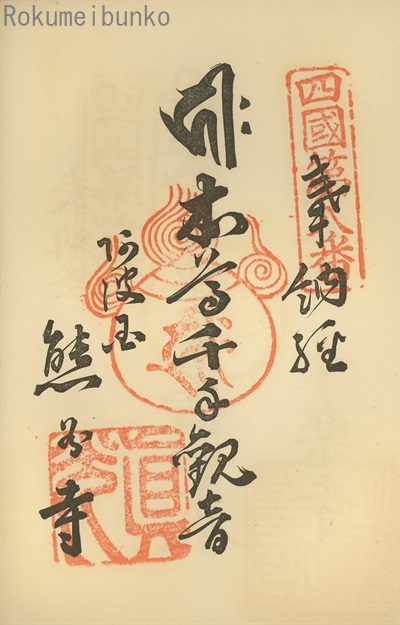 Rokumeibunko
四國第八番
奉納經
本尊千手觀音
阿波国
熊谷寺